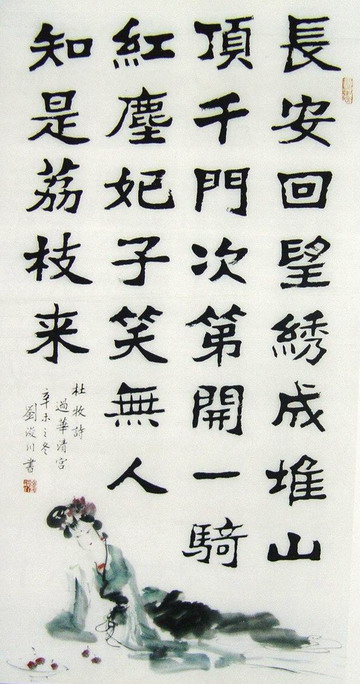 長安回望綉成堆山
頂千門次第開一騎
紅塵妃子笑無人
知是荔枝来
杜牧詩
過華清宮
辛未之冬
劉浚川書